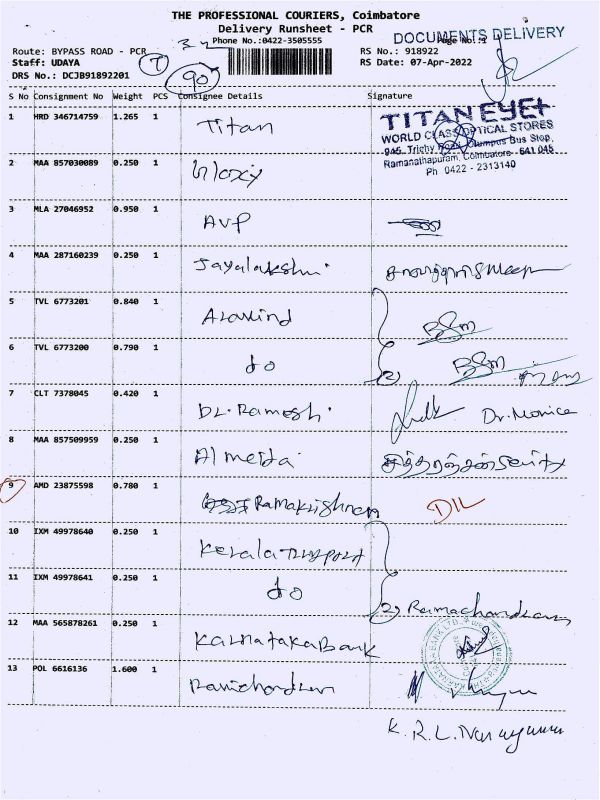 THE PROFESSIONAL COURIERS, Coimbatore
Delivery Runsheet - PCR
Phone No.:0422-3505555
DOCUMENTS DELIVERY
Page No.:1
Route: BYPASS ROAD - PCR
Staff: UDAYA
DRS No.: DCJB91892201
90
RS No.: 918922
RS Date: 07-Apr-2022
S No Consignment No Weight PCS Consignee Details Signature
1 HRD 346714759 1.265 1 Titan
TITAN EYE+
WORLD CLASS OPTICAL STORES
945, Trichy Road, Olumpus Bus Stop,
Ramanathapuram, Coimbatore - 641 045
Ph 0422 - 2313140
2 MAA 857030089 0.250 1
3 MLA 27046952 0.950 1 AVP
4 MAA 287160239 0.250 1 Jayalakshmi
5 TVL 6773201 0.840 1 Aravind BSm
6 TVL 6773200 0.790 1 do (2) BSm
7 CLT 7378045 0.420 1 Dr. Ramesh Dr. Monica
8 MAA 857509959 0.250 1 Almeida
9 AMD 23875598 0.780 1 Ramakrishnan D/L
10 IXM 49978640 0.250 1 Kerala
11 IXM 49978641 0.250 1 do (2) Ramachandran
12 MAA 565878261 0.250 1 Karnataka Bank
13 POL 6616136 1.600 1 Ramchandran
K. R. L. Narayanan